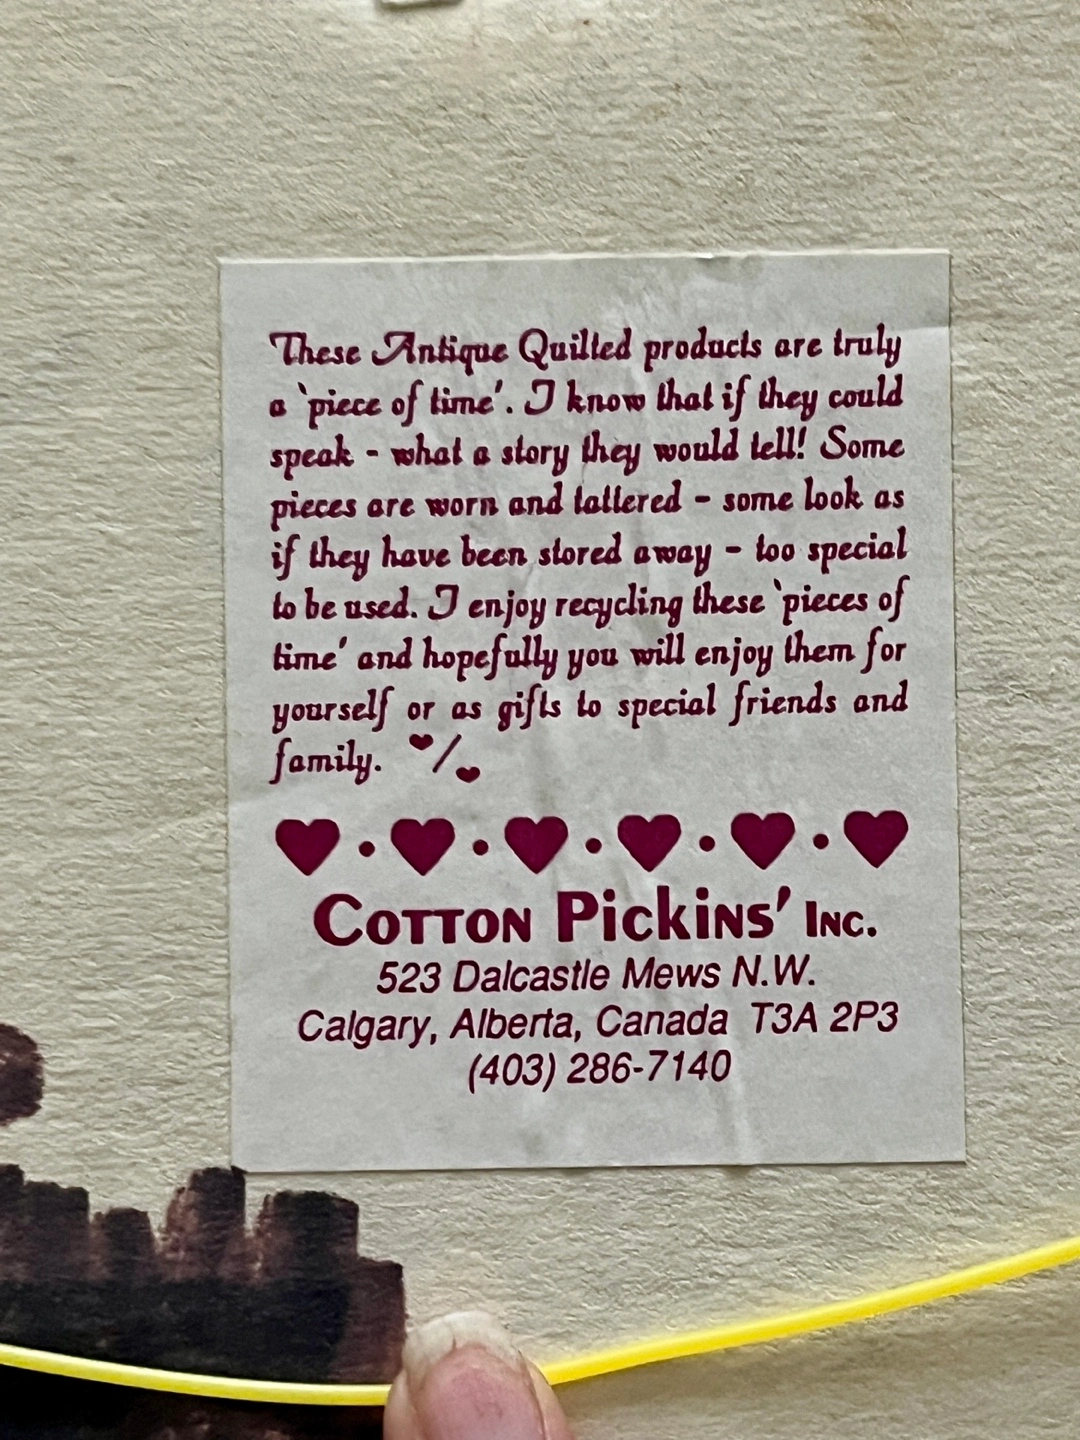 These Antique Quilted products are truly
a `piece of time'. I know that if they could
speak - what a story they would tell! Some
pieces are worn and tattered - some look as
if they have been stored away - too special
to be used. I enjoy recycling these `pieces of
time' and hopefully you will enjoy them for
yourself or as gifts to special friends and
family. ♥/♥
♥ • ♥ • ♥ • ♥ • ♥ • ♥
Cotton Pickins' Inc.
523 Dalcastle Mews N.W.
Calgary, Alberta, Canada T3A 2P3
(403) 286-7140